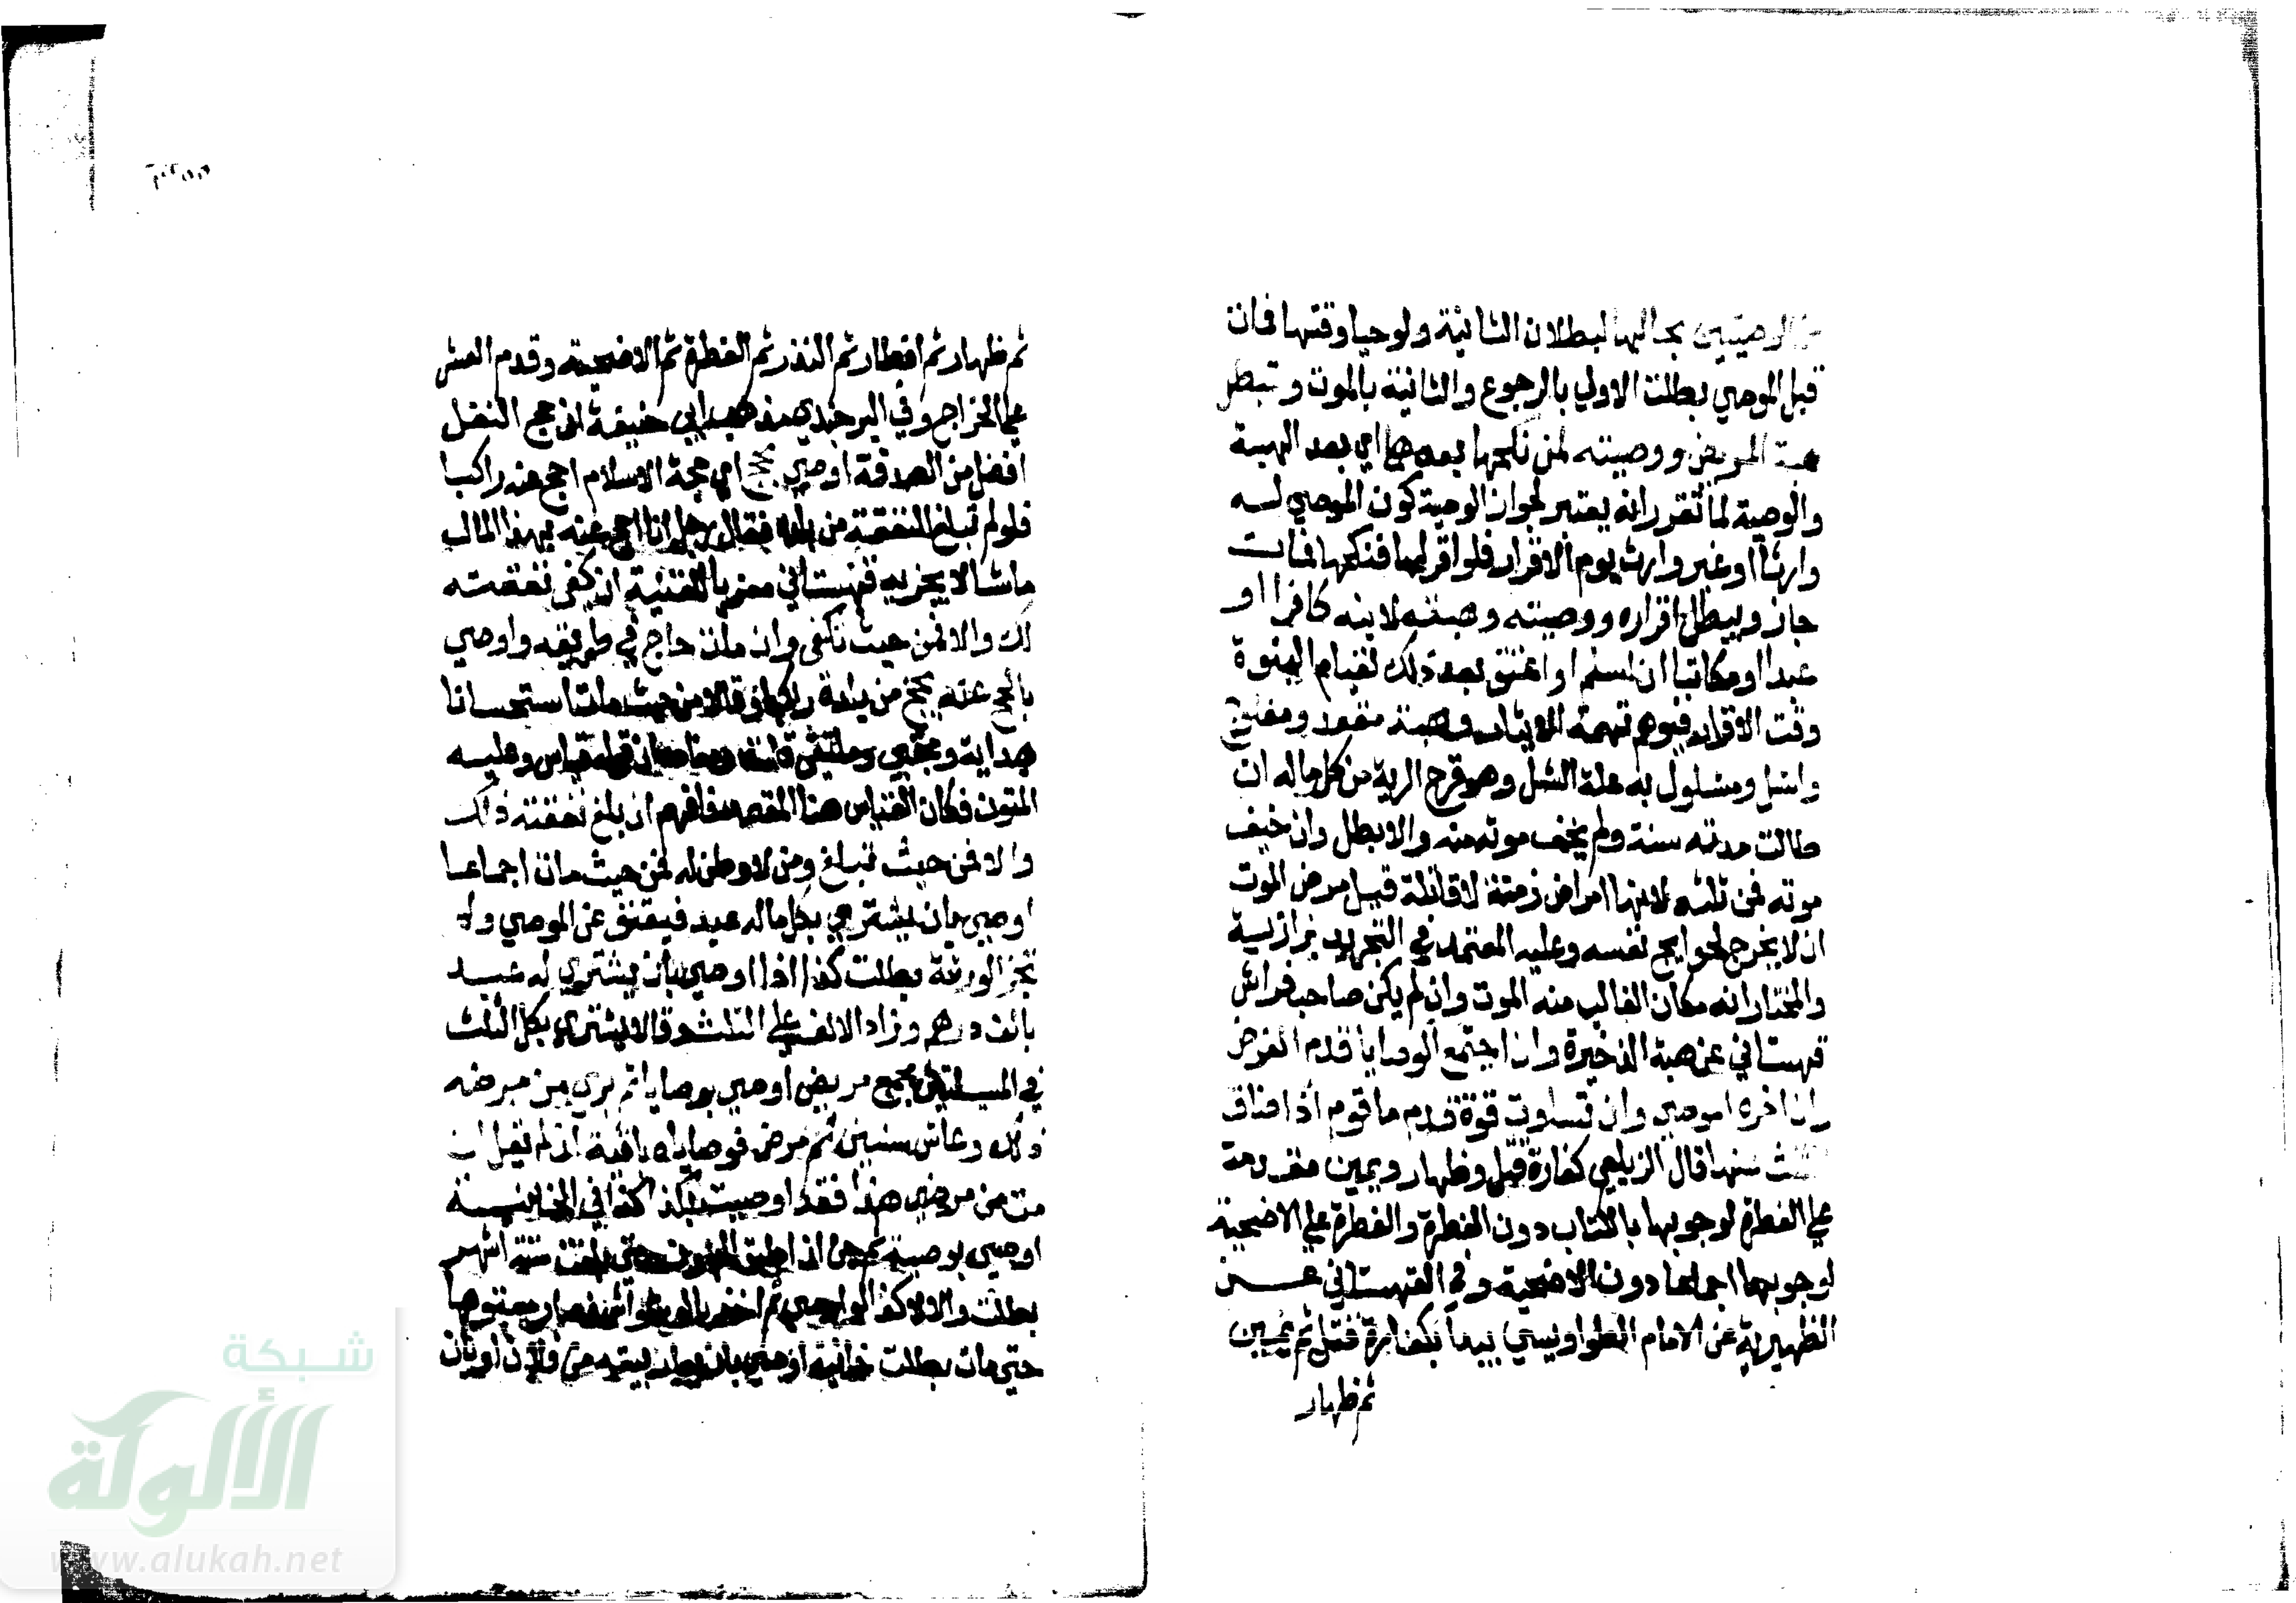 الوصيتين بحالها لبطلان الثانية ولو حيا وقتها فمات
قبل الموصي بطلت الاولي بالرجوع والثانية بالموت وتبطل
هبة المريض ووصيته لمن نكحها بعدها اي بعد الهبة
والوصية لما تقرر انه يعتبر لجواز الوصية كون الموصي لسه
وارثا او غير وارث يوم الاقرار فلو اقر لها فنكحها فمات
جاز ويبطل اقراره ووصيته وهبته لابنه كافرا او
عبدا او مكاتبا ان اسلم او اعتق بعد ذلك لقيام البنوة
وقت الاقرار فيوهم تهمة الايثار وهبة مقعد ومفلوج
واشل ومسلول به علة السل وهو قرح الرية من كل ماله ان
طالت مدته سنة ولم يخف موته منه والا بطل وان خيف
موته فمن ثلثه لانها امراض زمنة لا قاتلة قيل مرض الموت
ان لا يخرج لحوايج نفسه وعليه المعتمد في التجريد بزازية
والمختار انه مكان الغالب منه الموت وان لم يكن صاحب فراش
قهستاني عن هبة الذخيرة واذا اجتمع الوصايا قدم الفرض
وان اخره الموصي وان تساوت قوة قدم ما قدم اذا ضاق
الثلث عنها قال الزيلعي كفارة قتل وظهار ويمين مقدمة
علي الفطرة لوجوبها بالكتاب دون الفطرة والفطرة علي الاضحية
لوجوبها اجماعا دون الاضحية وفي القهستاني عن
الظهيرية عن الامام الطواويسي يبدا بكفارة قتل ثم يمين
ثم ظهار
ثم ظهار ثم افطار ثم النذر ثم الفطرة ثم الاضحية وقدم العشر
علي الخراج وفي البرجندي مذهب ابي حنيفة ان حج النفل
افضل من الصدقة اوصي بحج اي حجة الاسلام احج عنه راكبا
فلو لم تبلغ النفقة من بلده فقال رجل انا احج عنه بهذا المال
ماشيا لا يجزيه قهستاني معزيا للقنية ان كفي نفقته
ذلك والا فمن حيث تكفي وان مات حاج في طريقه واوصي
بالحج عنه يحج من بلده راكبا وقالا من حيث مات استحسانا
هداية ومجتبي وملتقي قلت ومفاده ان قوله قياس وعليه
المتون فكان القياس هنا المعتمد فافهم ان بلغ نفقته ذلك
والا فمن حيث تبلغ ومن لا وطن له فمن حيث مات اجماعا
اوصي بان يشتري بكل ماله عبد فيعتق عن الموصي ولم
تجز الورثة بطلت كذا اذا اوصي بان يشتري له عبد
بالف درهم وزاد الالف علي الثلث وقالا يشتري بكل الثلث
في المسئلتين مجمع مريض اوصي بوصايا ثم بري من مرضه
ذلك وعاش سنين ثم مرض فوصاياه باقية ان لم يقل ان
مت من مرضي هذا فقد اوصيت بكذا كذا في الخانية
اوصي بوصية ثم جن ان اطبق الجنون حتي بلغت ستة اشهر
بطلت والا لا كذا لو اوصي ثم اخذ بالوسواس فصار معتوها
حتي مات بطلت خانية اوصي بان يعار بيته من فلان او بان